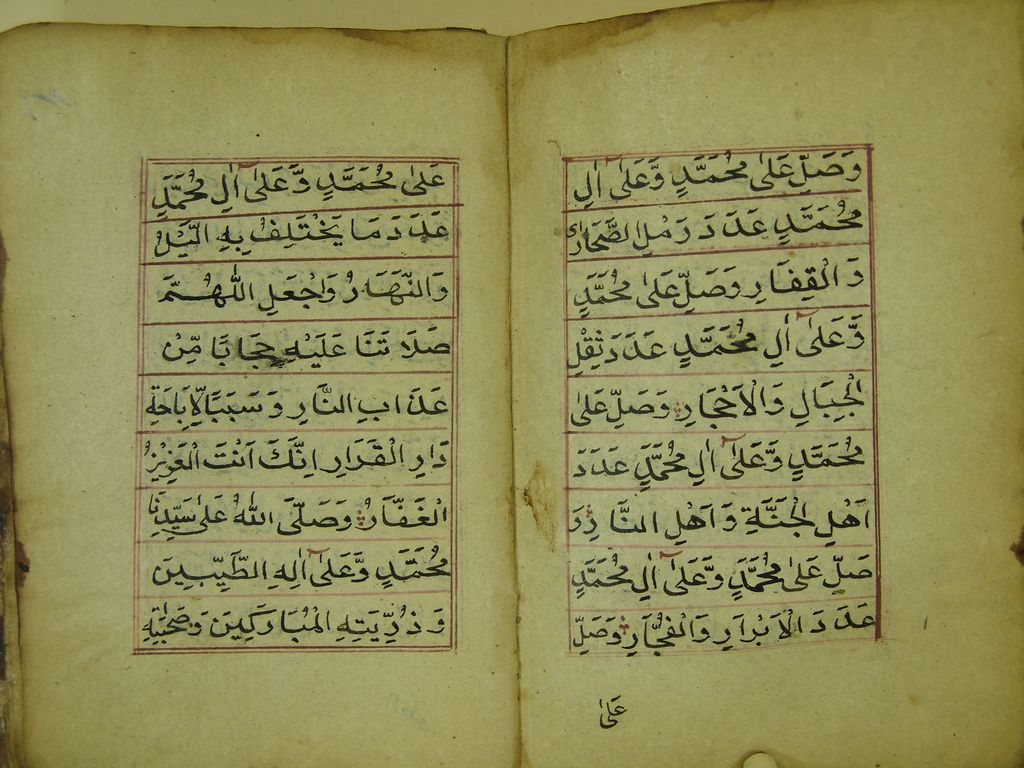 وَصَلِّ عَلٰى مُحَمَّدٍ وَّعَلٰٓى اٰلِ
مُحَمَّدٍ عَدَدَ رَمْلِ الصَّحَارٰى
وَالْقِفَارِ وَصَلِّ عَلٰى مُحَمَّدٍ
وَّعَلٰٓى اٰلِ مُحَمَّدٍ عَدَدَ ثِقْلِ
الْجِبَالِ وَالْاَحْجَارِ وَصَلِّ عَلٰى
مُحَمَّدٍ وَّعَلٰٓى اٰلِ مُحَمَّدٍ عَدَدَ
اَهْلِ الْجَنَّةِ وَاَهْلِ النَّارِ وَ
صَلِّ عَلٰى مُحَمَّدٍ وَّعَلٰٓى اٰلِ مُحَمَّدٍ
عَدَدَ الْاَبْرَارِ وَالْفُجَّارِ وَصَلِّ
عَلٰى
عَلٰى مُحَمَّدٍ وَّعَلٰٓى اٰلِ مُحَمَّدٍ
عَدَدَ مَا يَخْتَلِفُ بِهِ الَّيْلُ
وَالنَّهَارُ وَاجْعَلِ اللّٰهُمَّ
صَلَاتَنَا عَلَيْهِ حِجَابًا مِّنْ
عَذَابِ النَّارِ وَسَبَبًا لِّاِبَاحَةِ
دَارِ الْقَرَارِ اِنَّكَ اَنْتَ الْعَزِيْزُ
الْغَفَّارُ وَصَلَّى اللّٰهُ عَلٰى سَيِّدِنَا
مُحَمَّدٍ وَّعَلٰٓى اٰلِهِ الطَّيِّبِيْنَ
وَذُرِّيَّتِهِ الْمُبَارَكِيْنَ وَصَحَابَتِهِ